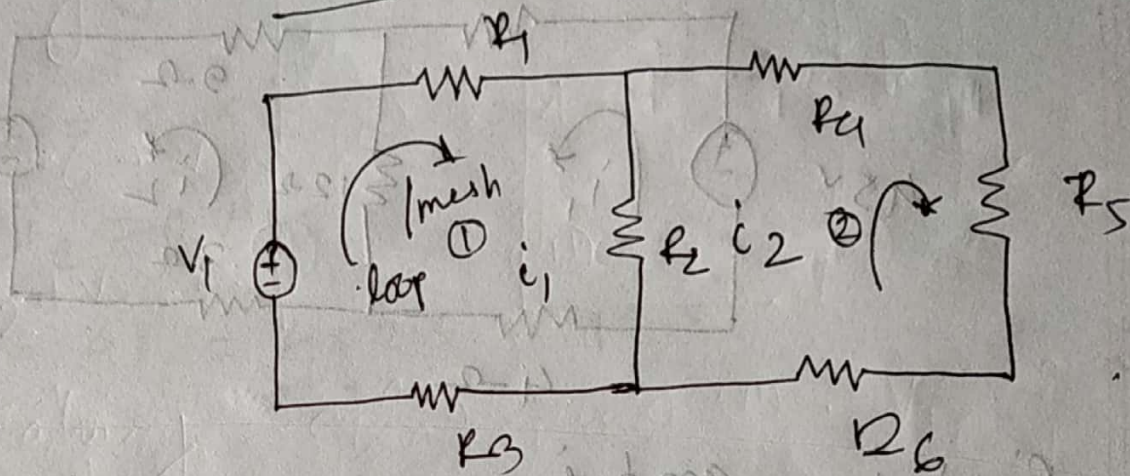 R1
R4
/mesh
①
R5
V1
+
-
loop
i1
R2
i2
②
R3
R6